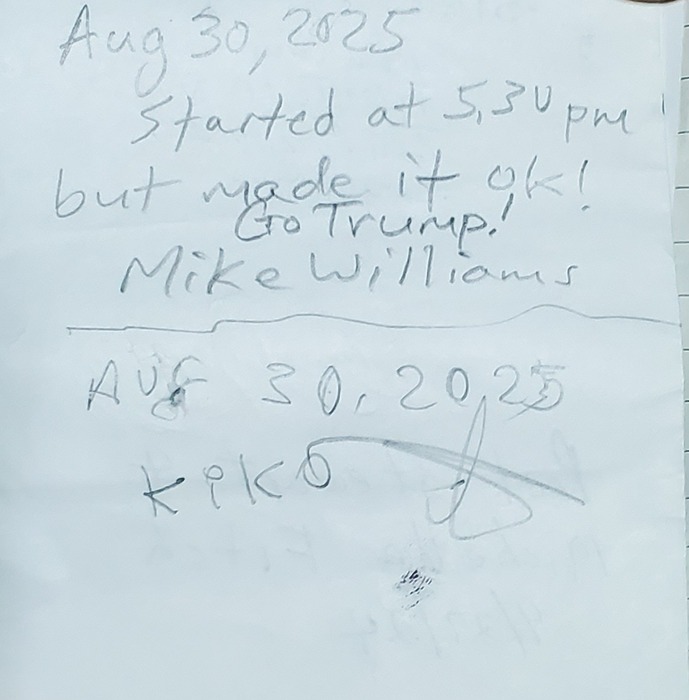 Aug 30, 2025
Started at 5,30 pm
but made it ok!
Go Trump!
Mike Williams
AUG 30, 2025
KiKO